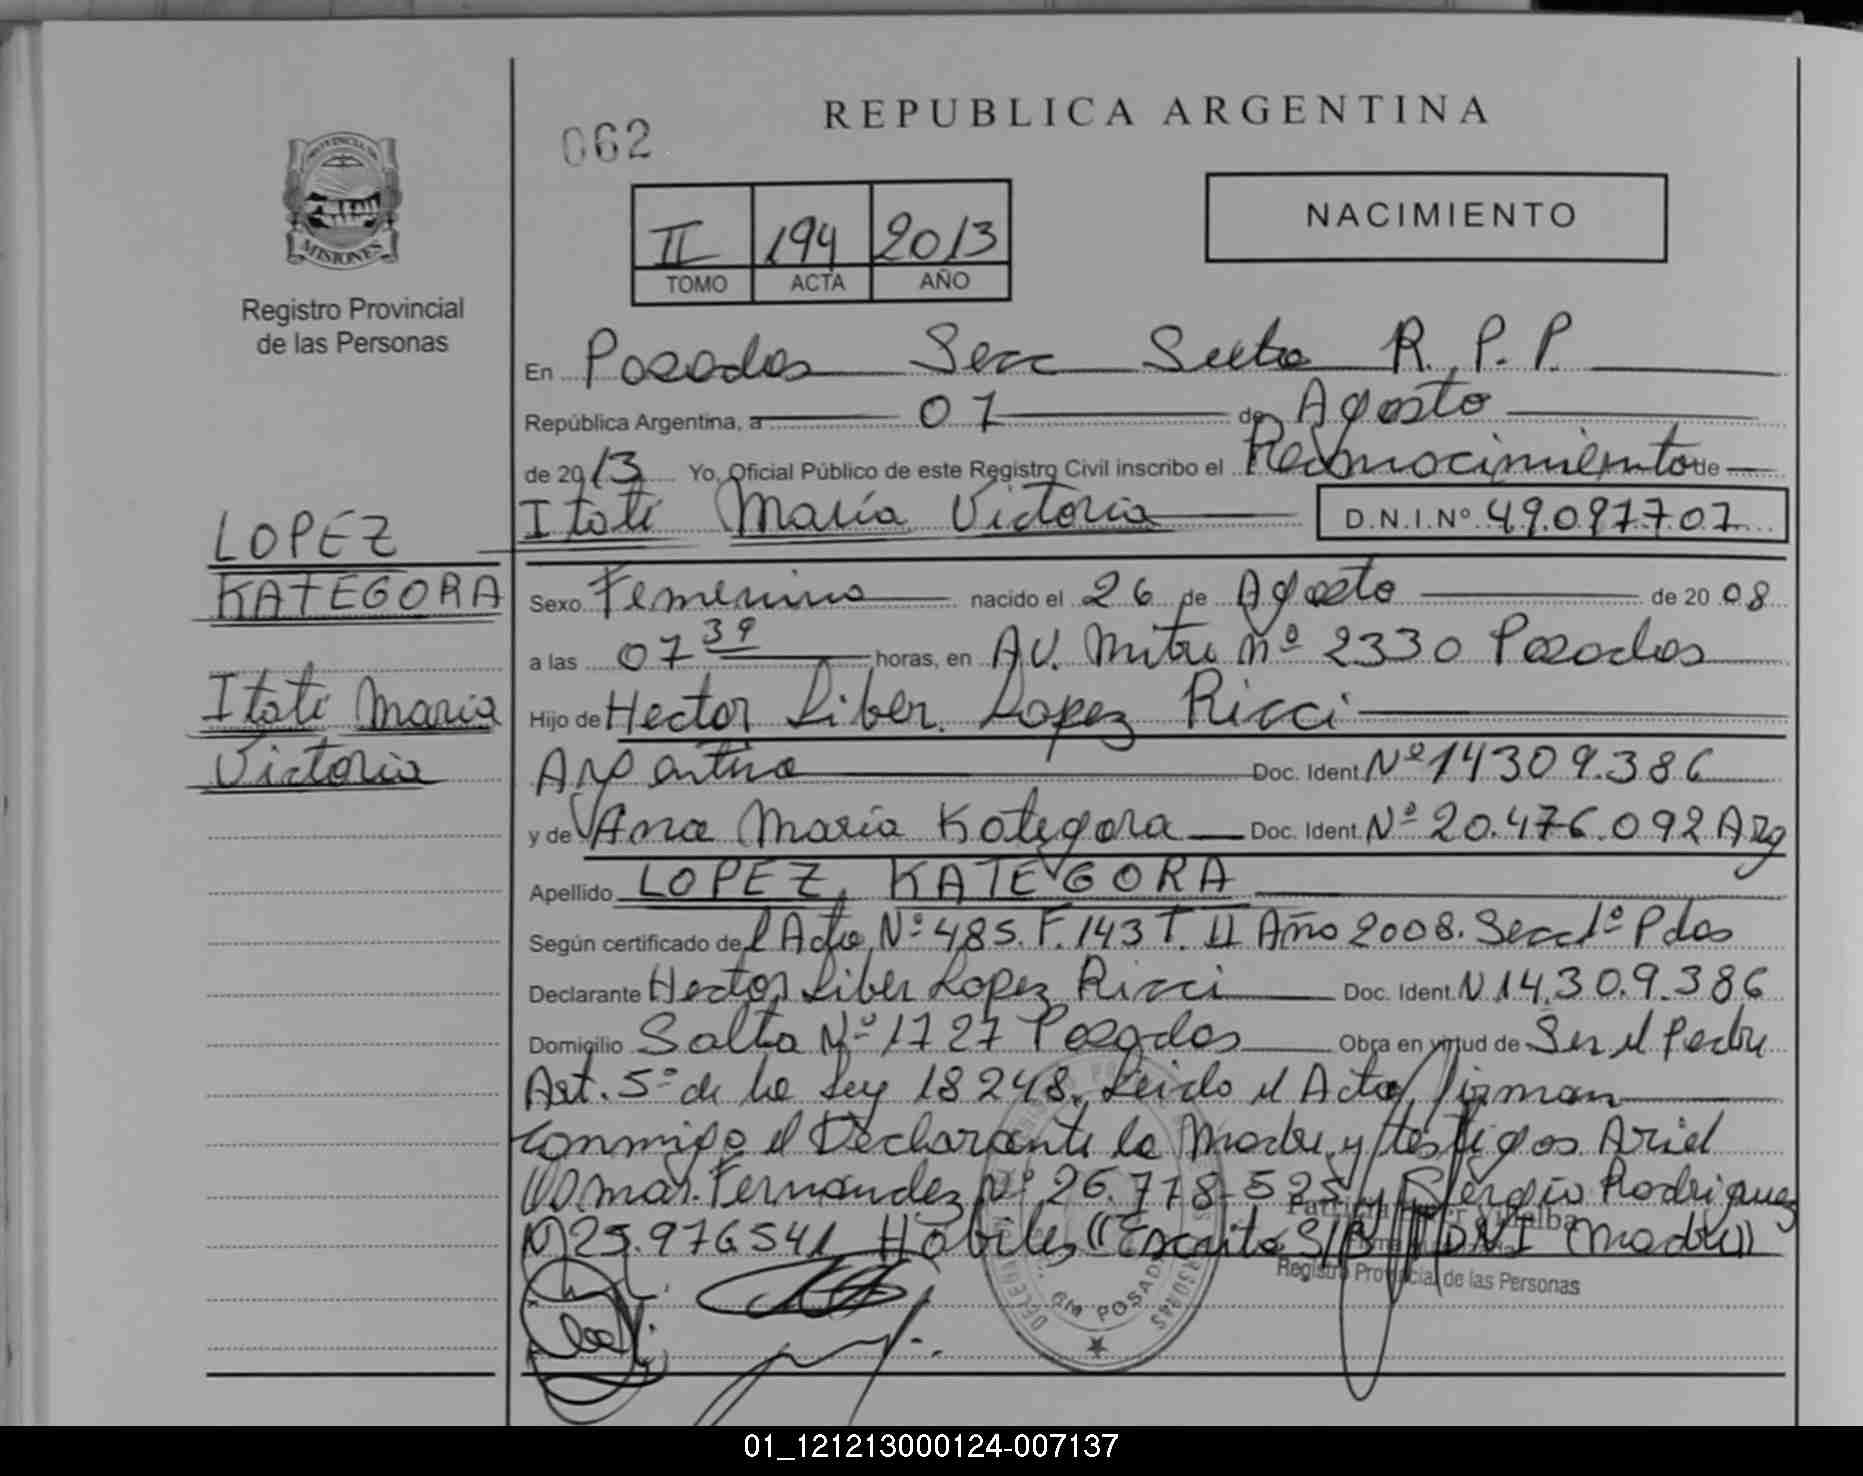 REPUBLICA ARGENTINA
062
NACIMIENTO
II 194 2013
TOMO ACTA AÑO
PROVINCIA DE
MISIONES
Registro Provincial
de las Personas
En Posadas Secc Sexta R.P.P.
República Argentina, a 07 de Agosto
de 2013 Yo, Oficial Público de este Registro Civil inscribo el Reconocimiento de
Itati María Victoria D.N.I.Nº 49.097.707
LOPEZ
KATEGORA
Itati María
Victoria
Sexo Femenino nacido el 26 de Agosto de 2008
a las 07 39 horas, en AV. Mitre Nº 2330 Posadas
Hijo de Hector Liber Lopez Ricci
Argentino Doc. Ident. Nº 14309.386
y de Ana María Kategora Doc. Ident. Nº 20.476.092 Arg
Apellido LOPEZ KATEGORA
Según certificado del Acta Nº 485. F. 143 T. II Año 2008. Secc 1º Pdas
Declarante Hector Liber Lopez Ricci Doc. Ident. N 14.309.386
Domicilio Salta Nº 1727 Posadas Obra en virtud de Ser el Padre
Art. 5º de la Ley 18248. Leido el Acta, firman
conmigo el Declarante la Madre y testigos Ariel
Omar Fernandez Nº 26.778.525 y Sergio Rodriguez
N 25.976541 Hábiles ((Escrito S/B DNI (Madre))
Registro Provincial de las Personas
POSADAS
01_121213000124-007137